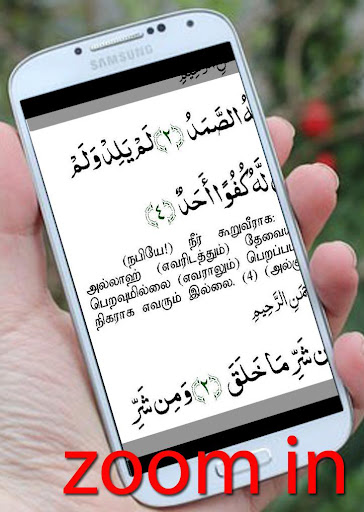 SAMSUNG
الصَّمَدُ ﴿٢﴾ لَمْ يَلِدْ وَلَمْ
لَّهُ كُفُوًا أَحَدٌ ﴿٤﴾
(நபியே!) நீர் கூறுவீராக:
அல்லாஹ் (எவரிடத்தும்) தேவைப்
பெறவுமில்லை (எவராலும்) பெறப்பட
நிகராக எவரும் இல்லை. (4) (அல்கு
شَرِّ مَا خَلَقَ ﴿٢﴾ وَمِن شَرِّ
zoom in